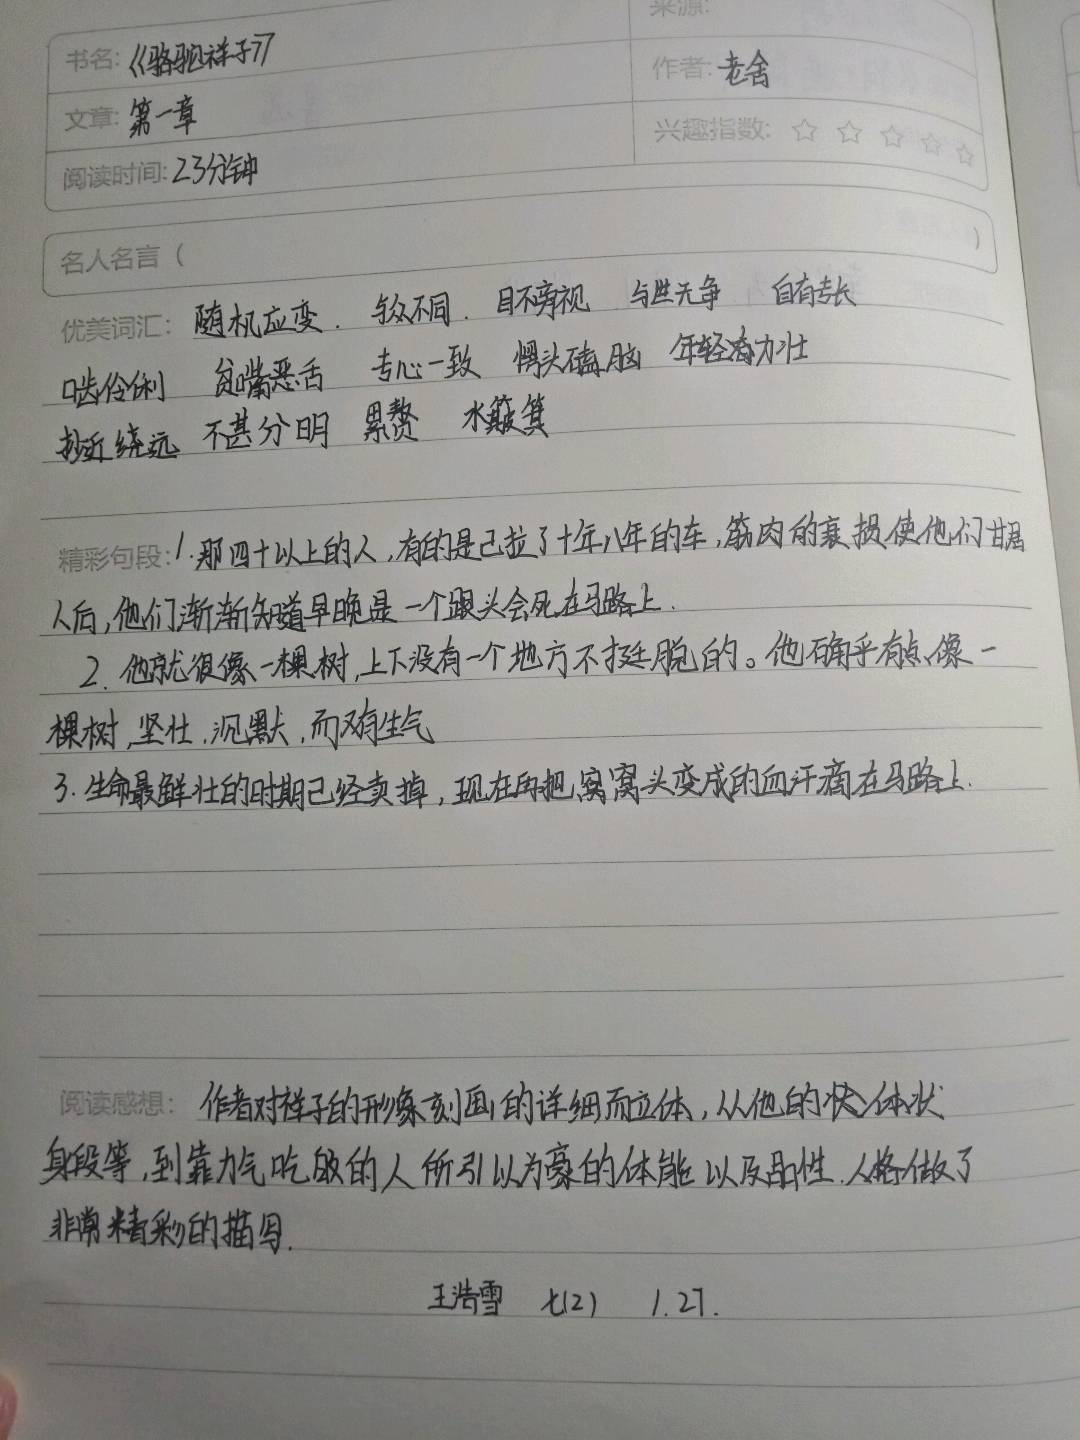 来源:
书名:《骆驼祥子》
作者:老舍
文章:第一章
兴趣指数:☆☆☆☆☆
阅读时间:23分钟
名人名言( )
优美词汇: 随机应变. 与众不同. 目不旁视 与世无争 自有专长
口齿伶俐 贫嘴恶舌 专心一致 愣头磕脑 年轻力壮
抄近绕远 不甚分明 累赘 水簸箕
精彩句段:1.那四十以上的人,有的是已拉了十年八年的车,筋肉的衰损使他们甘居
人后,他们渐渐知道早晚是一个跟头会死在马路上.
2.他就很像一棵树,上下没有一个地方不挺脱的。他确乎有点像一
棵树,坚壮.沉默.而又有生气
3.生命最鲜壮的时期已经卖掉,现在再把窝窝头变成的血汗滴在马路上.
阅读感想: 作者对祥子的形象刻画的详细而立体,从他的体状
身段等,到靠力气吃饭的人所引以为豪的体能以及品性.人格做了
非常精彩的描写.
王浩雪 七(2) 1.27.